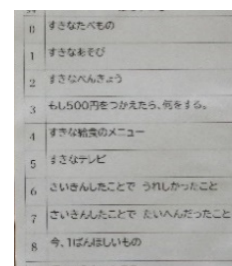 0 すきなたべもの
1 すきなあそび
2 すきなべんきょう
3 もし500円をつかえたら、何をする。
4 すきな給食のメニュー
5 すきなテレビ
6 さいきんしたことで うれしかったこと
7 さいきんしたことで たいへんだったこと
8 今、1ばんほしいもの